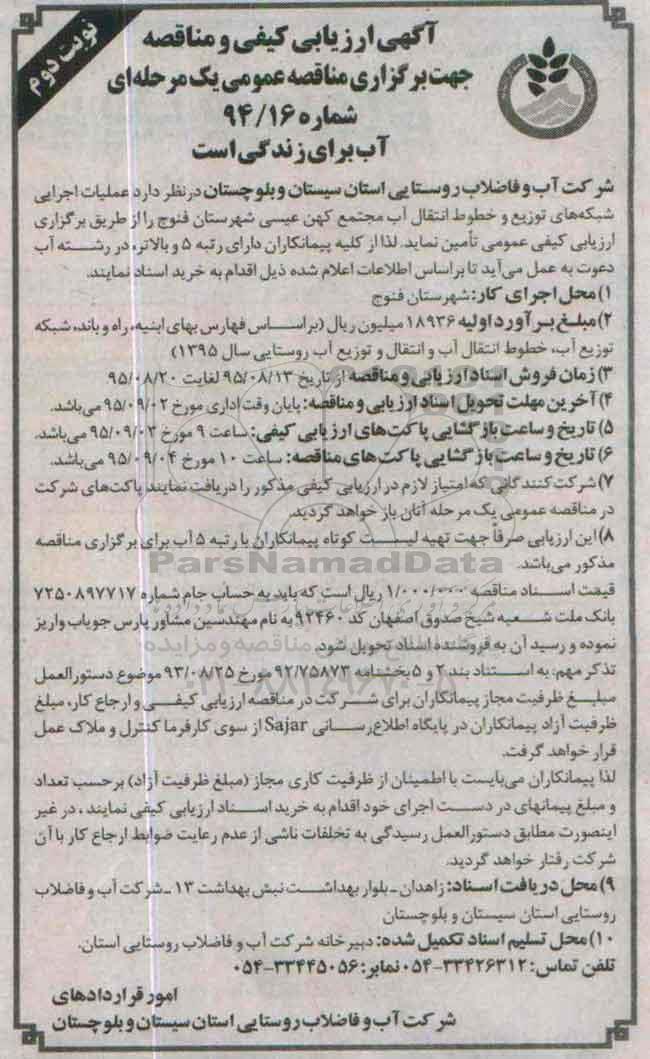 نوبت دوم
آگهی ارزیابی کیفی و مناقصه
جهت برگزاری مناقصه عمومی یک مرحله‌ای
شماره ۹۴/۱۶
آب برای زندگی است
شرکت آب و فاضلاب روستایی استان سیستان و بلوچستان درنظر دارد عملیات اجرایی
شبکه‌های توزیع و خطوط انتقال آب مجتمع کهن عیسی شهرستان فنوج را از طریق برگزاری
ارزیابی کیفی عمومی تأمین نماید. لذا از کلیه پیمانکاران دارای رتبه ۵ و بالاتر، در رشته آب
دعوت به عمل می‌آید تا براساس اطلاعات اعلام شده ذیل اقدام به خرید اسناد نمایند.
۱) محل اجرای کار: شهرستان فنوج
۲) مبلغ برآورد اولیه ۱۸۹۳۶ میلیون ریال (براساس فهارس بهای ابنیه، راه و باند، شبکه
توزیع آب، خطوط انتقال آب و انتقال و توزیع آب روستایی سال ۱۳۹۵)
۳) زمان فروش اسناد ارزیابی و مناقصه از تاریخ ۹۵/۰۸/۱۳ لغایت ۹۵/۰۸/۲۰
۴) آخرین مهلت تحویل اسناد ارزیابی و مناقصه: پایان وقت اداری مورخ ۹۵/۰۹/۰۲ می‌باشد.
۵) تاریخ و ساعت بازگشایی پاکت‌های ارزیابی کیفی: ساعت ۹ مورخ ۹۵/۰۹/۰۳ می‌باشد.
۶) تاریخ و ساعت بازگشایی پاکت‌های مناقصه: ساعت ۱۰ مورخ ۹۵/۰۹/۰۴ می‌باشد.
۷) شرکت‌کنندگانی که امتیاز لازم در ارزیابی کیفی مذکور را دریافت نمایند پاکت‌های شرکت
در مناقصه عمومی یک مرحله آنان باز خواهد گردید.
۸) این ارزیابی صرفاً جهت تهیه لیست کوتاه پیمانکاران با رتبه ۵ آب برای برگزاری مناقصه
مذکور می‌باشد.
ParsNamadData
قیمت اسناد مناقصه ۱/۰۰۰/۰۰۰ ریال است که باید به حساب جام شماره ۷۲۵۰۸۹۷۷۱۷
بانک ملت شعبه شیخ صدوق اصفهان کد ۹۲۴۶۰ به نام مهندسین مشاور پارس جویاب واریز
نموده و رسید آن به فروشنده اسناد تحویل شود.
تذکر مهم: به استناد بند ۲ و ۵ بخشنامه ۹۲/۷۵۸۷۳ مورخ ۹۳/۰۸/۲۵ موضوع دستورالعمل
مبلغ ظرفیت مجاز پیمانکاران برای شرکت در مناقصه ارزیابی کیفی و ارجاع کار، مبلغ
ظرفیت آزاد پیمانکاران در پایگاه اطلاع‌رسانی Sajar از سوی کارفرما کنترل و ملاک عمل
قرار خواهد گرفت.
لذا پیمانکاران می‌بایست با اطمینان از ظرفیت کاری مجاز (مبلغ ظرفیت آزاد) برحسب تعداد
و مبلغ پیمانهای در دست اجرای خود اقدام به خرید اسناد ارزیابی کیفی نمایند، در غیر
اینصورت مطابق دستورالعمل رسیدگی به تخلفات ناشی از عدم رعایت ضوابط ارجاع کار با آن
شرکت رفتار خواهد گردید.
۹) محل دریافت اسناد: زاهدان - بلوار بهداشت نبش بهداشت ۱۳ - شرکت آب و فاضلاب
روستایی استان سیستان و بلوچستان
۱۰) محل تسلیم اسناد تکمیل شده: دبیرخانه شرکت آب و فاضلاب روستایی استان.
تلفن تماس: ۳۳۴۲۶۳۱۲-۰۵۴ نمابر: ۳۳۴۴۵۰۵۶-۰۵۴
امور قراردادهای
شرکت آب و فاضلاب روستایی استان سیستان و بلوچستان